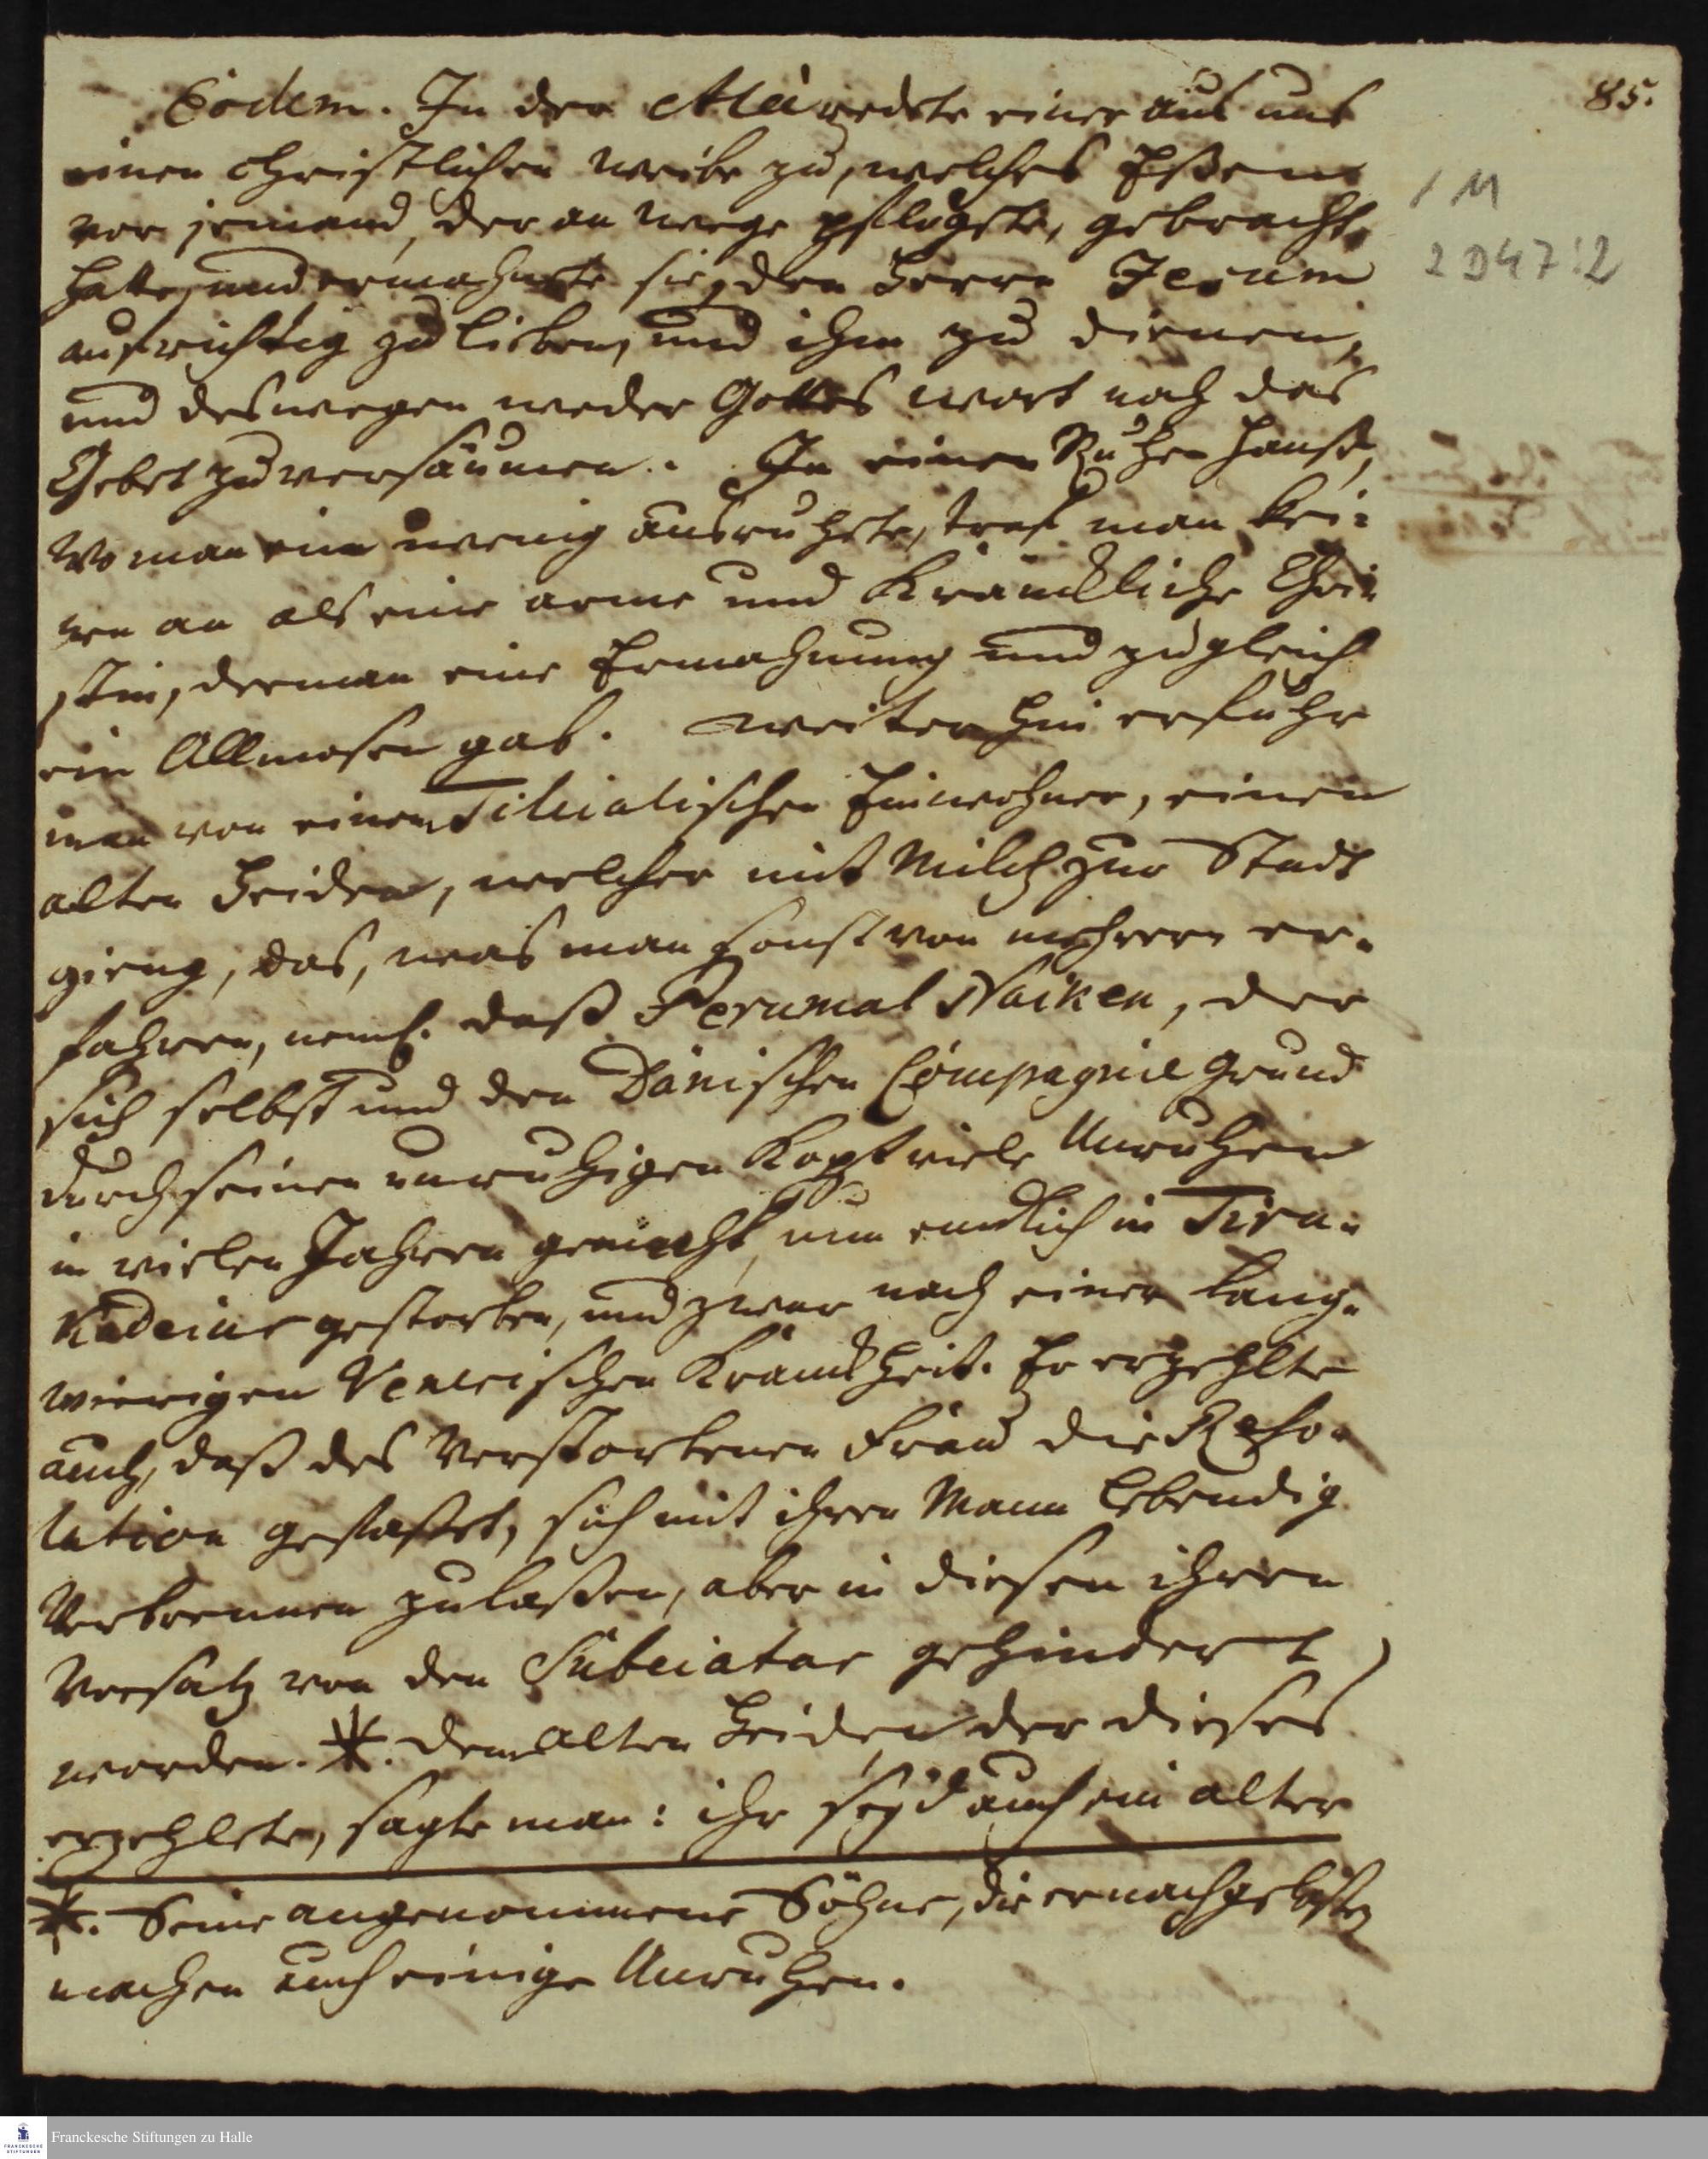 85.
Eodem. In der Aleé redete einer aus uns
einen christlichen Weibe zu, welches Eßen
vor jemand, der am wege pflügete, gebracht
hatte, und ermahnte sie, den Herrn Jesum
aufrichtig zu lieben, und ihm zu dienen,
und deswegen weder Gottes wort noch das
Gebet zu versäumen. In einen Ruhe Hause,
wo man ein wenig ausruhete, traf man kei-
nen an als eine arme und kränckliche Chri-
stin, der man eine Ermahnung und zugleich
ein Allmosen gab. weiter hin erfuhr
man von einem Tilliälischen Einwohner, einen
alten Heiden, welcher mit Milch zur Stadt
gieng, das, was man sonst von mehrern er-
fahren, neml. daß Perumal Naiken, der
sich selbst und den Dänischen Compagnie Grund
durch seinen unruhigen Kopf viele Unruhen
in vielen Jahren gemacht, nun endlich in Tiru-
Kadeiur gestorben, und zwar nach einer lang-
wierigen Venerischen Kranckheit. Er erzehlte
auch, daß des Verstorbenen Frau die Reso-
lution gefasset, sich mit ihren Mann lebendig
Verbrennen zulaßen, aber in diesen ihren
Vorsatz von den Subeiatar gehindert
worden. *. dem alten Heiden der dieses
erzehlete, sagte man: ihr seyd auch ein alter
*. Seine angenommene Söhne, die er nachgelaßen
machen auch einige Unruhen.
1 M
2 D47:2
Franckesche Stiftungen zu Halle